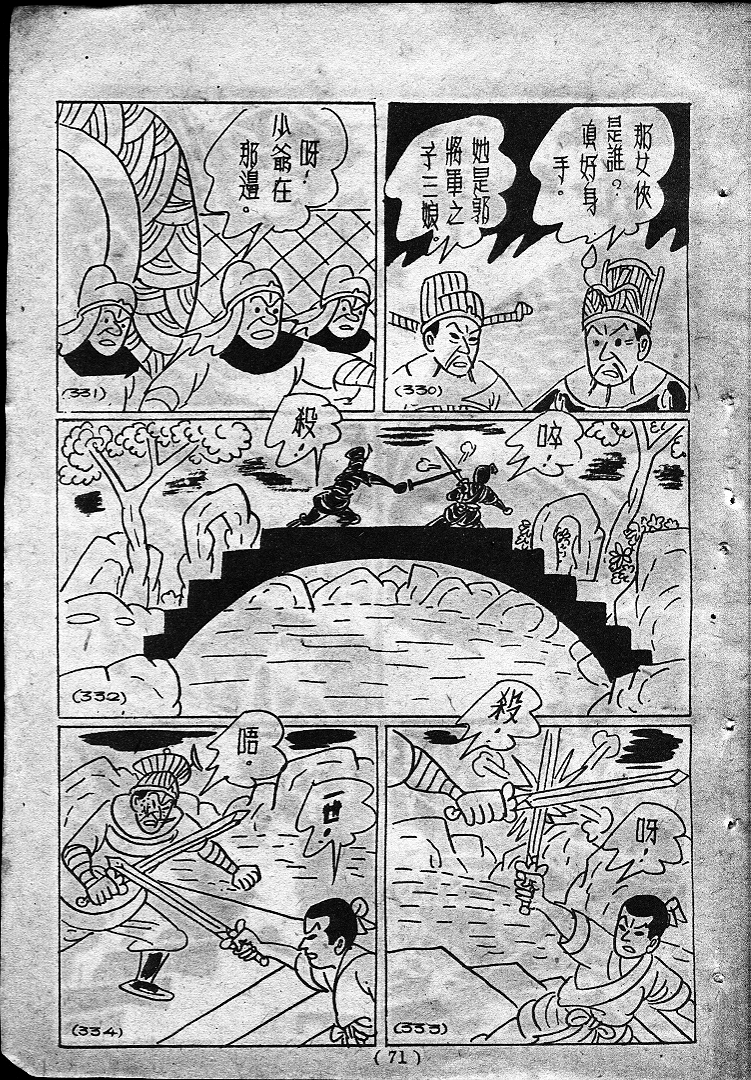 那女俠
是誰？
真好身
手。
她是郭
將軍之
子三娘。
(330)
呀！
少爺在
那邊。
(331)
啐！
殺！
(332)
殺！
呀！
(333)
唔！
(334)
(71)